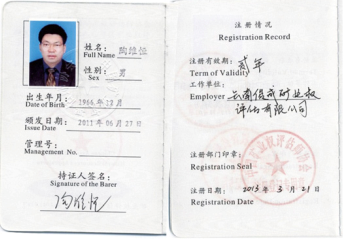 姓名: 陶维恒
Full Name
性别: 男
Sex
出生年月: 1966年12月
Date of Birth
颁发日期: 2011年06月27日
Issue Date
管理号:
Management No.
持证人签名:
Signature of the Barer
注册情况
Registration Record
注册有效期: 贰年
Term of Validity
工作单位:
Employer 云南俊成矿业权
评估有限公司
注册部门印章:
Registration Seal
注册日期: 2013年3月21日
Registration Date